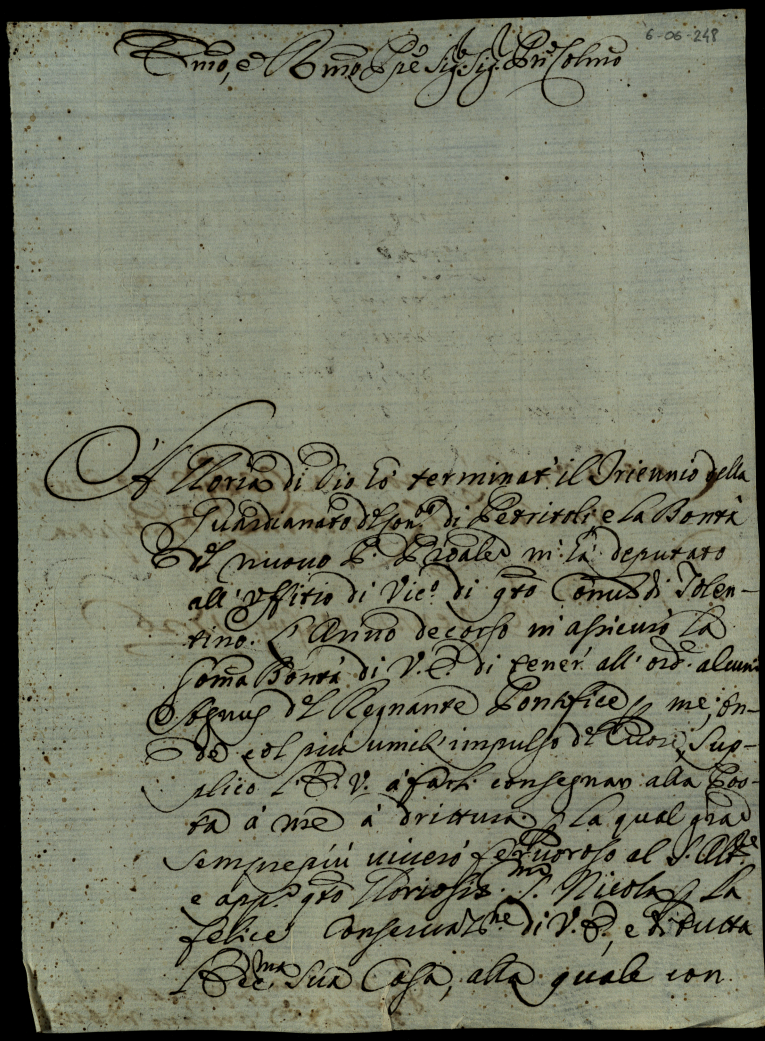 6-06-248
Emo, e Rmo Ppe Sig. Sig. Prn Colmo
A Gloria di Dio hò terminat' il Triennio della
Guardianato del Con.to di Petritoli e la Bontà
del nuouo P. Prouale m'hà deputato
all'Uffitio di Vic.o di qto Conuto di Tolen-
tino. L'Anno decorso m'assicurò la
Somā Bontà di V. E. di tener all'ord.e alcuni
Agnus del Regnante Pontefice p me, on-
de col più umil' impulso del Cuore, Sup-
plico L'E. V. à farli consegnar alla Pos-
ta à me à drittura p la qual gra
sempre più uiuerò feruoroso al S. Alt.re
e app.o qto Gloriosis.mo S. Nicola p la
felice Conseruaz.ne di V. E., e di tutta
l'Ecc.ma Sua Casa, alla quale con